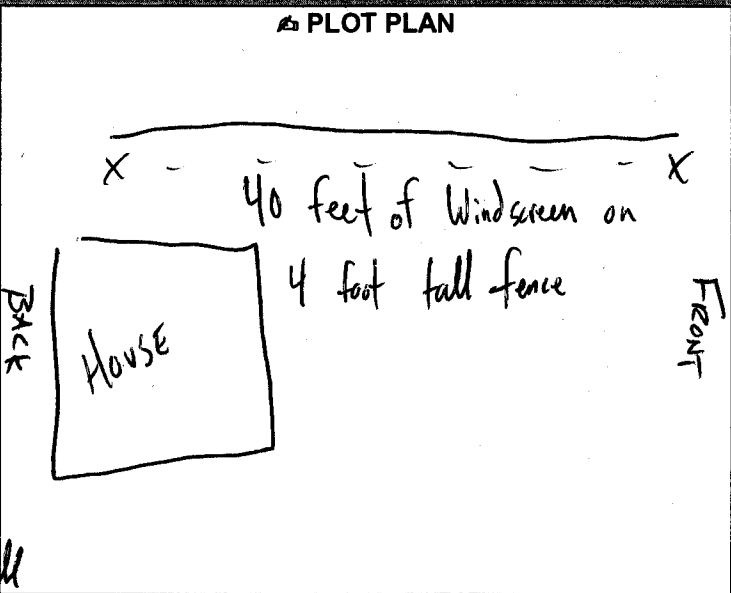 ✍ PLOT PLAN
X - - - - - - X
40 feet of Windscreen on
4 foot tall fence
BACK
HOUSE
FRONT